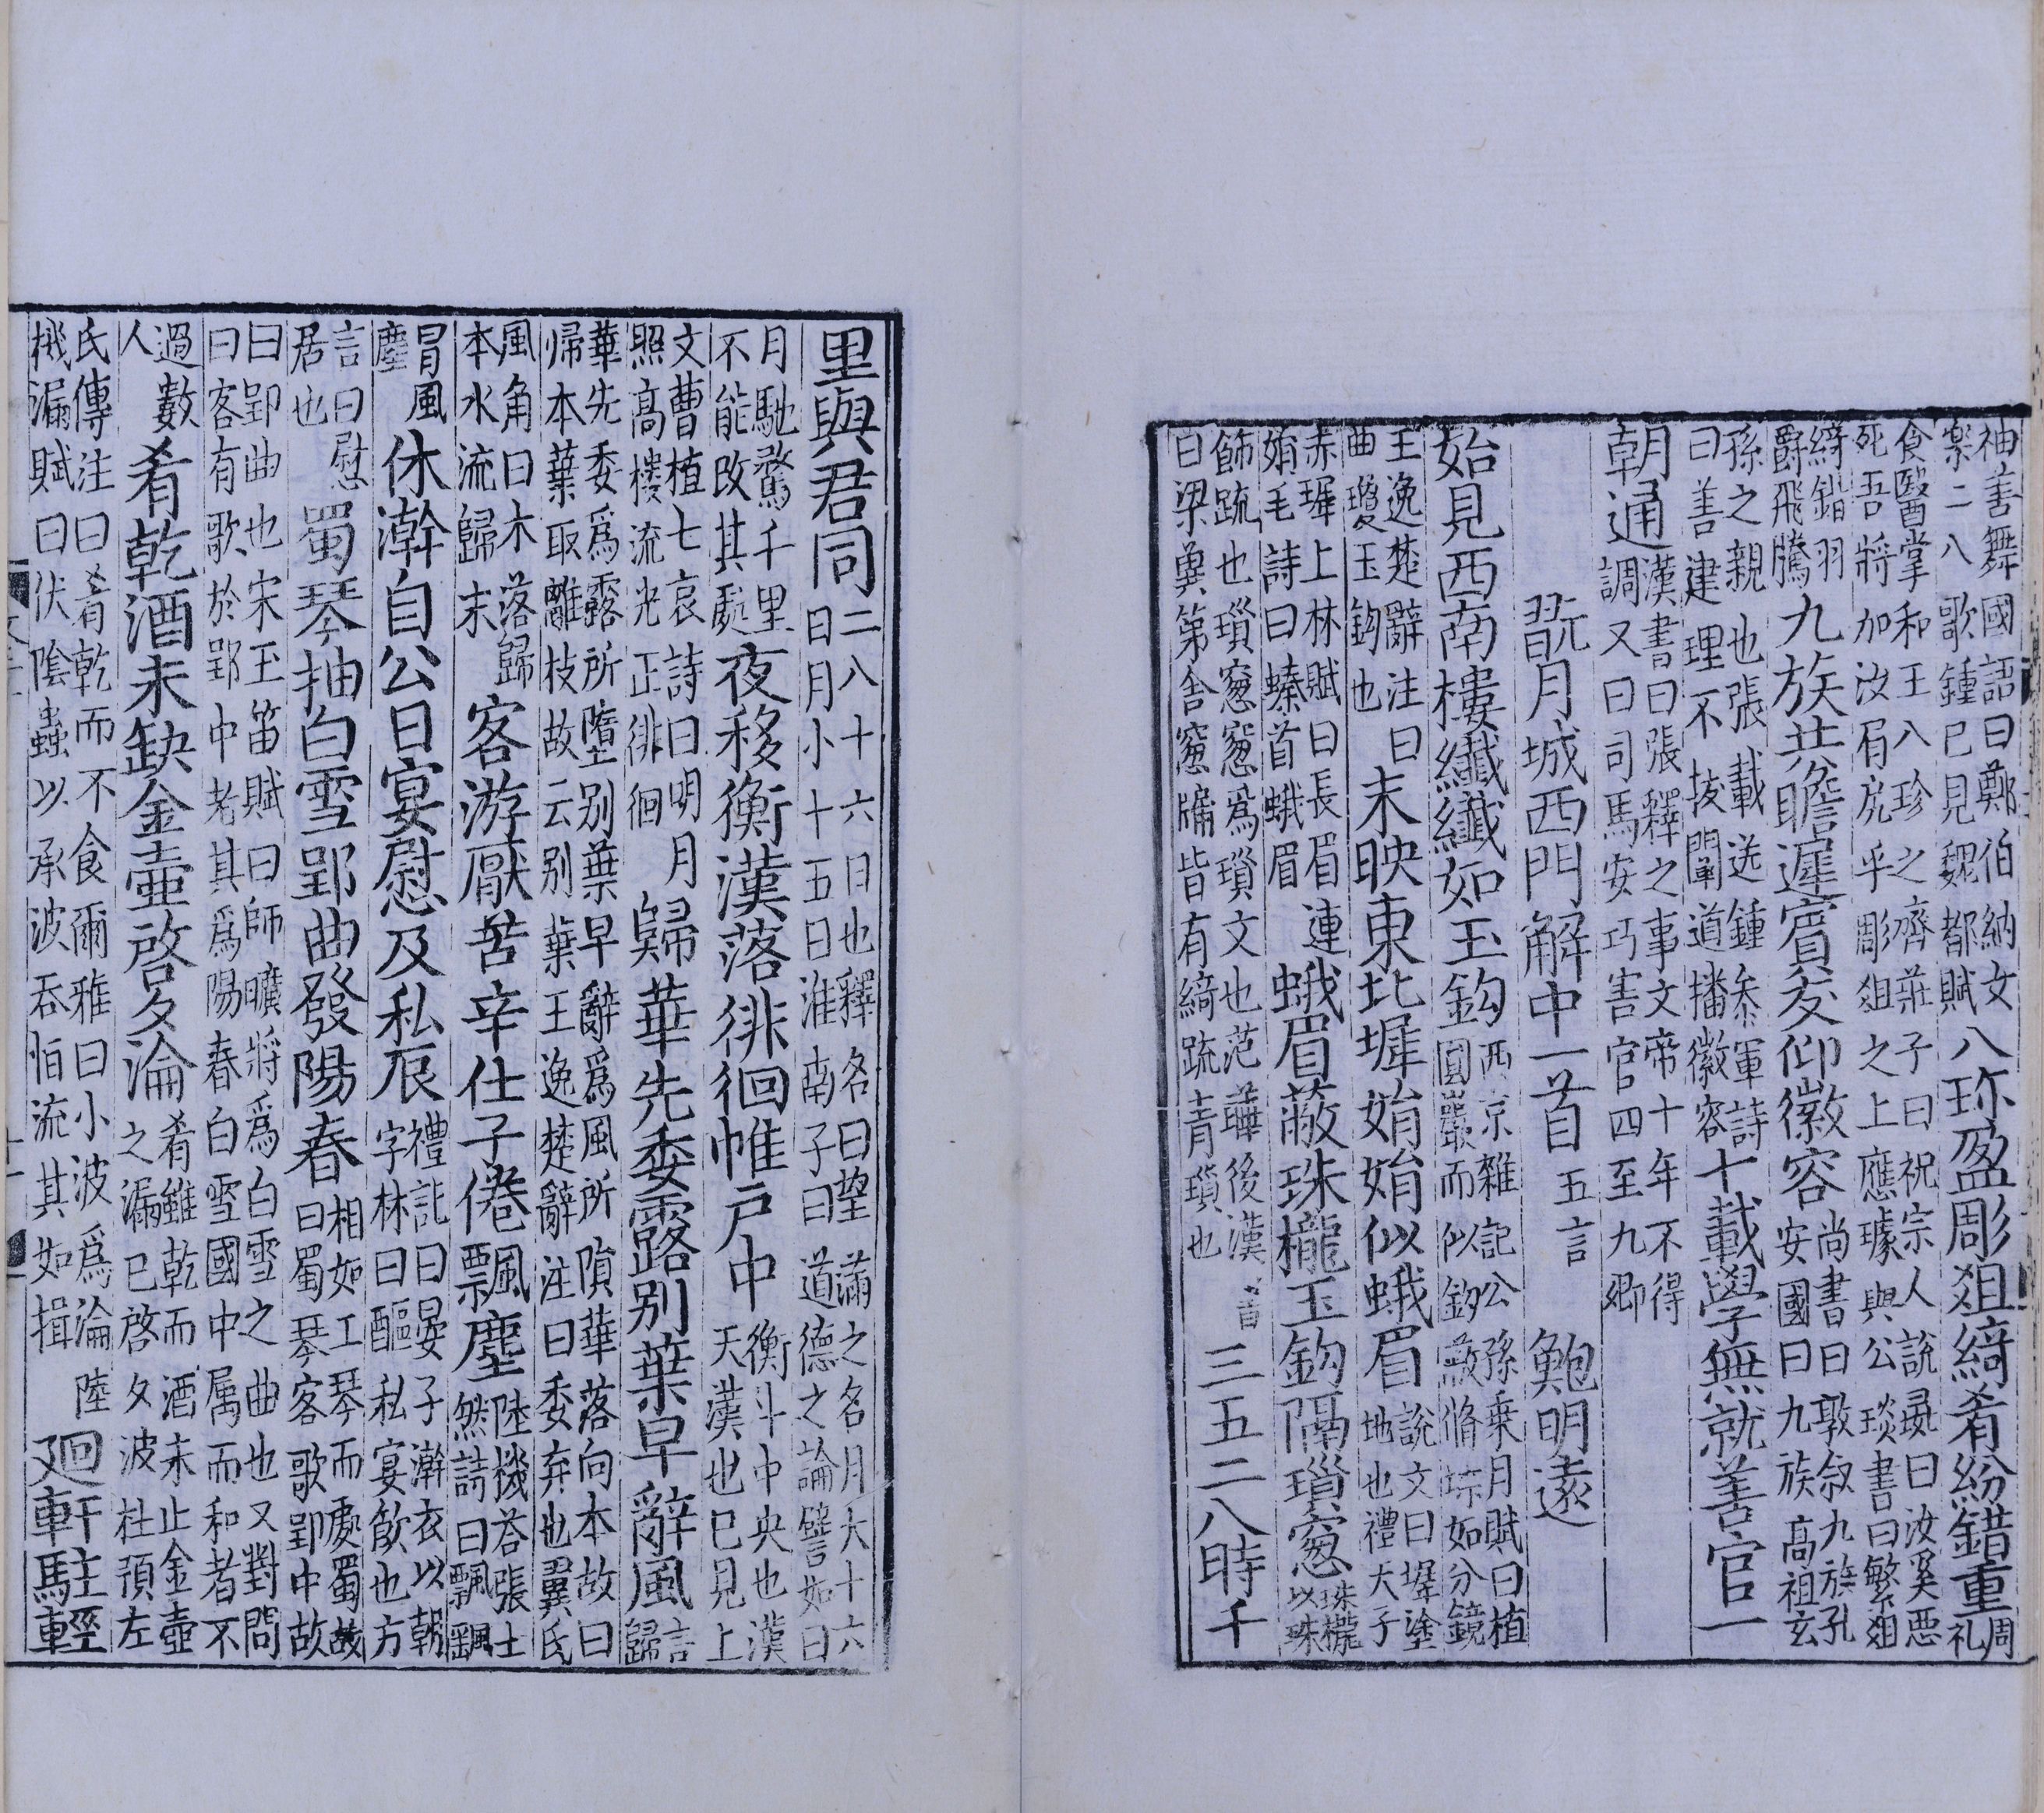 袖善舞國語曰鄭伯納女
樂二八歌鍾已見魏都賦
八珎盈彫爼綺肴紛錯重
周
礼
食醫掌和王八珍之齊莊子曰祝宗人說彘曰汝奚惡
死吾將加汝肩尻乎彫爼之上應璩與公琰書曰繁爼
綺錯羽
爵飛騰
九族共瞻遲賔友仰徽容
尚書曰敦叙九族孔
安國曰九族高祖玄
孫之親也張載送鍾叅軍詩
曰善建理不拔闡道播徽容
十載學無就善官一
朝通
漢書曰張釋之事文帝十年不得
調又曰司馬安巧害官四至九卿
翫月城西門解中一首
五言
鮑明遠
始見西南樓纖纖如玉鈎
西京雜記公孫乗月賦曰植
圓巖而似鈎蔽脩如分鏡
王逸楚辭注曰
曲瓊玉鈎也
末映東北墀娟娟似蛾眉
說文曰墀塗
地也禮天子
赤墀上林賦曰長眉連
娟毛詩曰螓首蛾眉
蛾眉蔽珠櫳玉鈎隔瑣窻
珠櫳
以珠
飾疏也瑣窻窻爲瑣文也范曄後漢
曰梁冀第舎窻牖皆有綺疏青瑣也
三五二八時千
里與君同
二八十六日也釋名曰望滿之名月大十六
日月小十五日淮南子曰道德之論譬如日
月馳騖千里
不能改其處
夜移衡漢落徘徊帷戸中
衡斗中央也漢
天漢也已見上
文曹植七哀詩曰明月
照高樓流光正徘徊
歸華先委露别葉早辭風
言
歸
華先委爲露所墮别葉早辭爲風所隕華落向本故曰
帰本葉取離枝故云别葉王逸楚辭注曰委弃也翼氏
風角曰木落歸
本水流歸末
客游厭苦辛仕子倦飄塵
陸機荅張士
然詩曰飄颻
冒風
塵
休澣自公日宴慰及私辰
禮記曰晏子澣衣以朝
字林曰醧私宴飲也方
言曰慰
居也
蜀琴抽白雪郢曲發陽春
相如工琴而處蜀故
曰蜀琴客歌郢中故
曰郢曲也宋玉笛賦曰師曠將爲白雪之曲也又對問
曰客有歌於郢中老其爲陽春白雪國中属而和者不
過數
人
肴乾酒未缺金壷啓夕淪
肴雖乾而酒未止金壺
之漏已啓夕波杜預左
氏傳注曰肴乾而不食爾雅曰小波爲淪陸
機漏賦曰伏陰蟲以承波吞恒流其如揖
廻軒駐輕